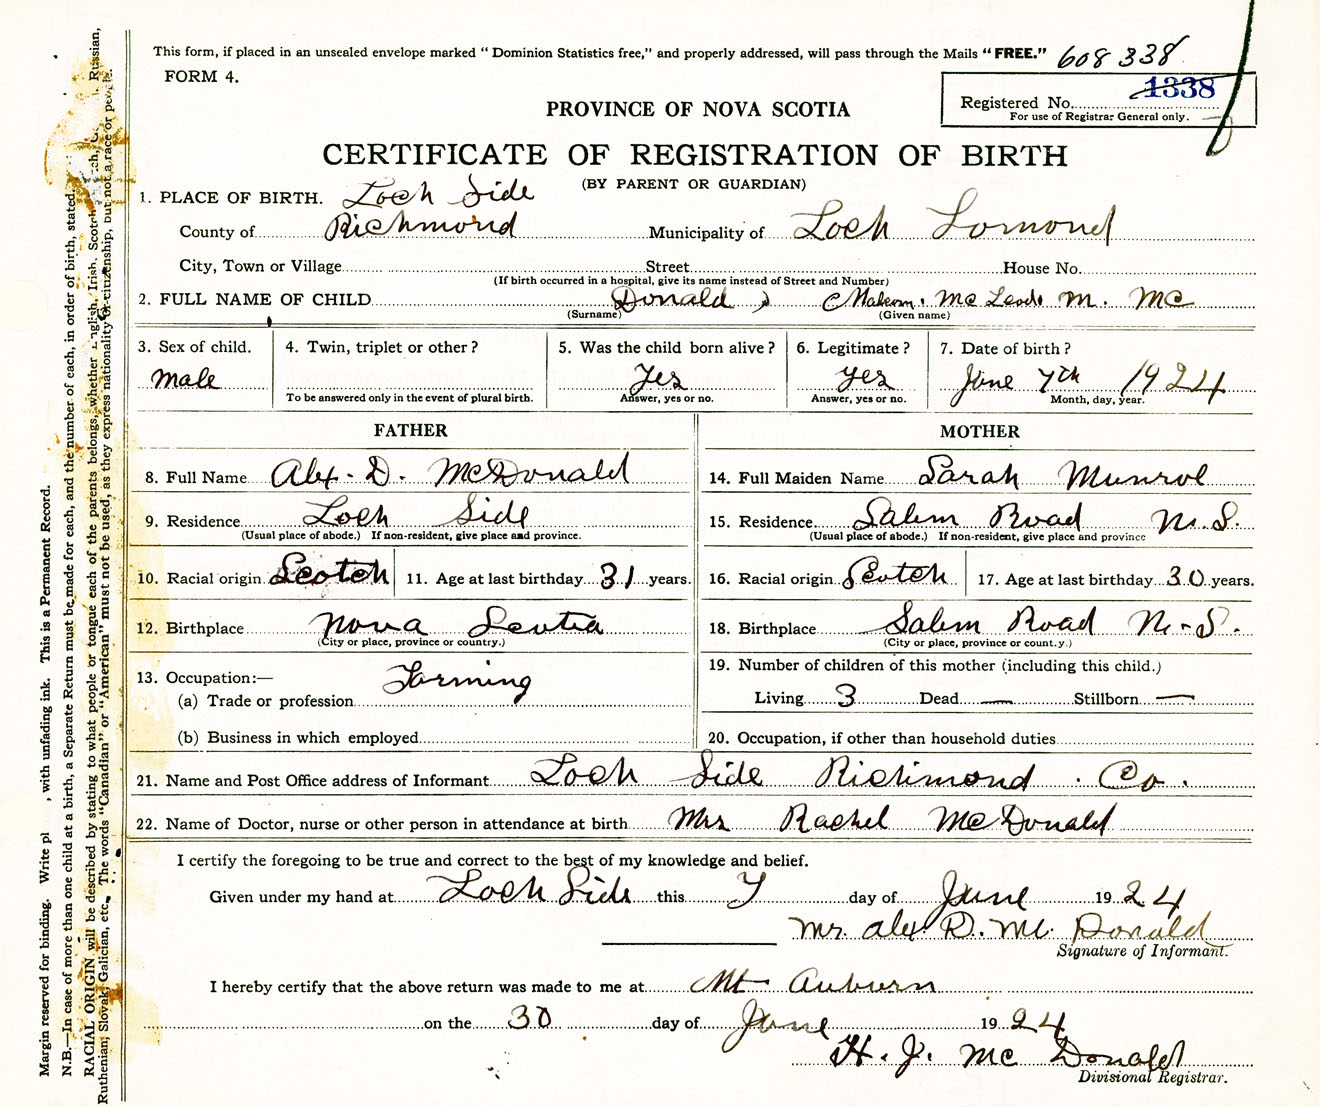 This form, if placed in an unsealed envelope marked "Dominion Statistics free," and properly addressed, will pass through the Mails "FREE." 608338
FORM 4.
1338
Registered No.
For use of Registrar General only.
PROVINCE OF NOVA SCOTIA
CERTIFICATE OF REGISTRATION OF BIRTH
(BY PARENT OR GUARDIAN)
1. PLACE OF BIRTH. Loch Side
County of Richmond Municipality of Loch Lomond
City, Town or Village Street House No.
(If birth occurred in a hospital, give its name instead of Street and Number)
2. FULL NAME OF CHILD Donald, Malcom. Mc Leod. M. Mc
(Surname) (Given name)
3. Sex of child. 4. Twin, triplet or other? 5. Was the child born alive? 6. Legitimate? 7. Date of birth?
male yes yes June 7th 1924
To be answered only in the event of plural birth. Answer, yes or no. Answer, yes or no. Month, day, year.
FATHER MOTHER
8. Full Name Alex. D. McDonald 14. Full Maiden Name Sarah Munroe
9. Residence Loch Side 15. Residence Salem Road N.S.
(Usual place of abode.) If non-resident, give place and province. (Usual place of abode.) If non-resident, give place and province
10. Racial origin Scotch 11. Age at last birthday 31 years. 16. Racial origin Scotch 17. Age at last birthday 30 years.
12. Birthplace Nova Scotia 18. Birthplace Salem Road N-S.
(City or place, province or country.) (City or place, province or count.y.)
13. Occupation:— Farming 19. Number of children of this mother (including this child.)
(a) Trade or profession Living 3 Dead — Stillborn —
(b) Business in which employed 20. Occupation, if other than household duties
21. Name and Post Office address of Informant Loch Side Richmond. Co.
22. Name of Doctor, nurse or other person in attendance at birth Mrs Rachel McDonald
I certify the foregoing to be true and correct to the best of my knowledge and belief.
Given under my hand at Loch Side this 7 day of June 1924
Mr. Alex D. Mc Donald
Signature of Informant.
I hereby certify that the above return was made to me at Mt Auburn
on the 30 day of June 1924
H. J. Mc Donald
Divisional Registrar.
Margin reserved for binding. Write pl , with unfading ink. This is a Permanent Record.
N.B.—In case of more than one child at a birth, a Separate Return must be made for each, and the number of each, in order of birth, stated.
RACIAL ORIGIN will be described by stating to what people or tongue each of the parents belongs, whether English, Irish, Scotch, Russian,
Ruthenian, Slovak, Galician, etc. The words "Canadian" or "American" must not be used, as they express nationality or citizenship, but not a race or people.